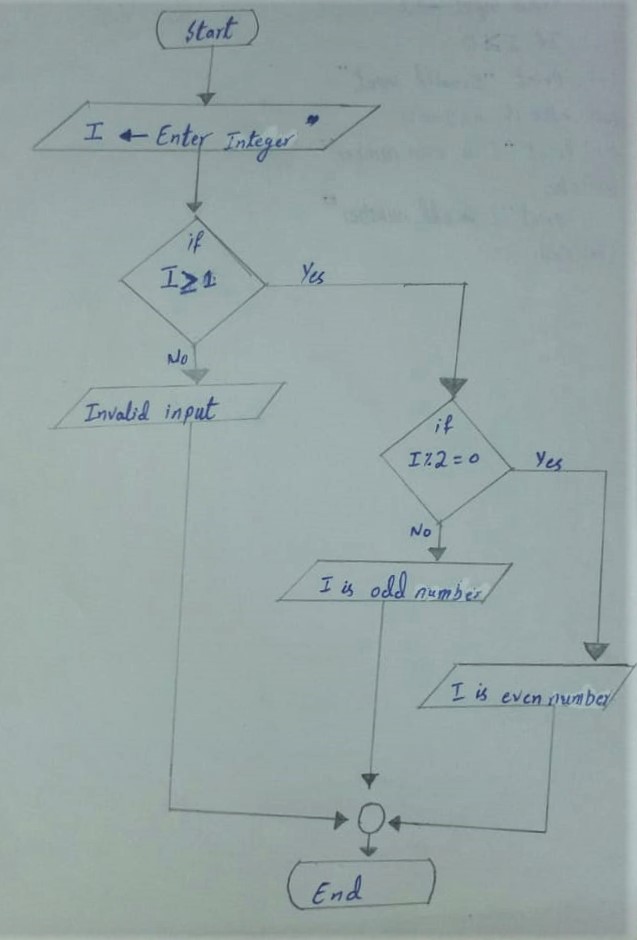 Start
I ← Enter Integer "
if
I ≥ 1
Yes
No
Invalid input
if
I%2 = 0
Yes
No
I is odd number
I is even number
End